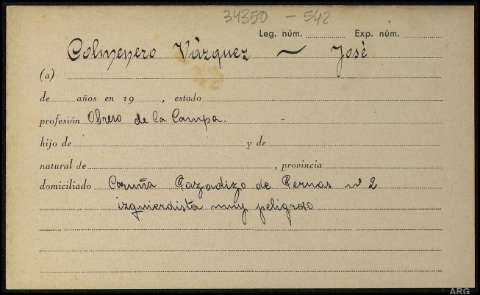 34350 - 542
Leg. núm. Exp. núm.
Colmenero Vázquez ~ José
(a)
de años en 19 , estado
profesión Obrero de la Campsa. -
hijo de y de
natural de , provincia
domiciliado Coruña Pazadizo de Pernas nº 2
izquierdista muy peligroso
ARG